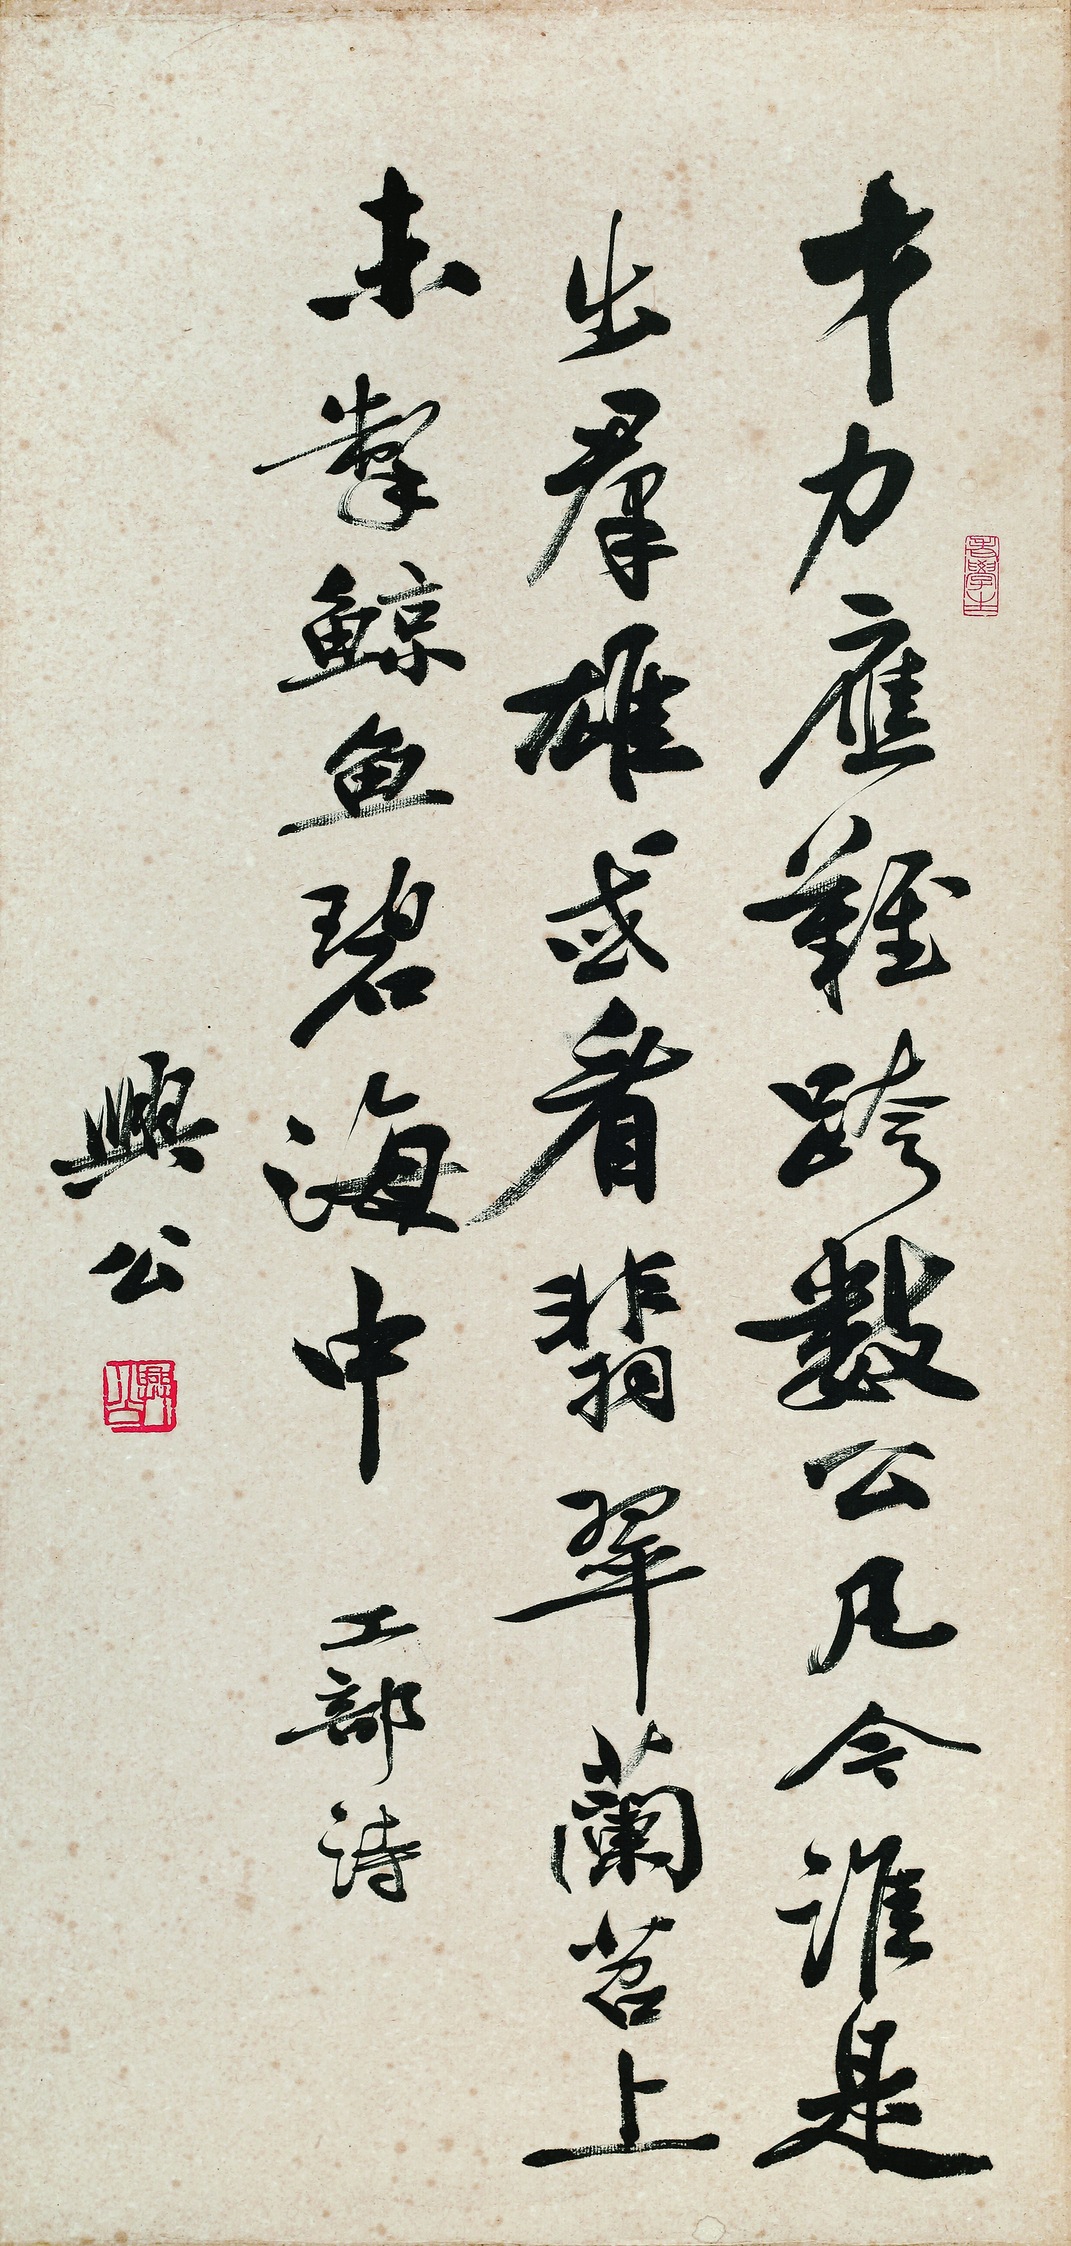 才力應難跨數公凡今誰是
出羣雄或看翡翠蘭苕上
未掣鯨魚碧海中 工部詩
興公
興公